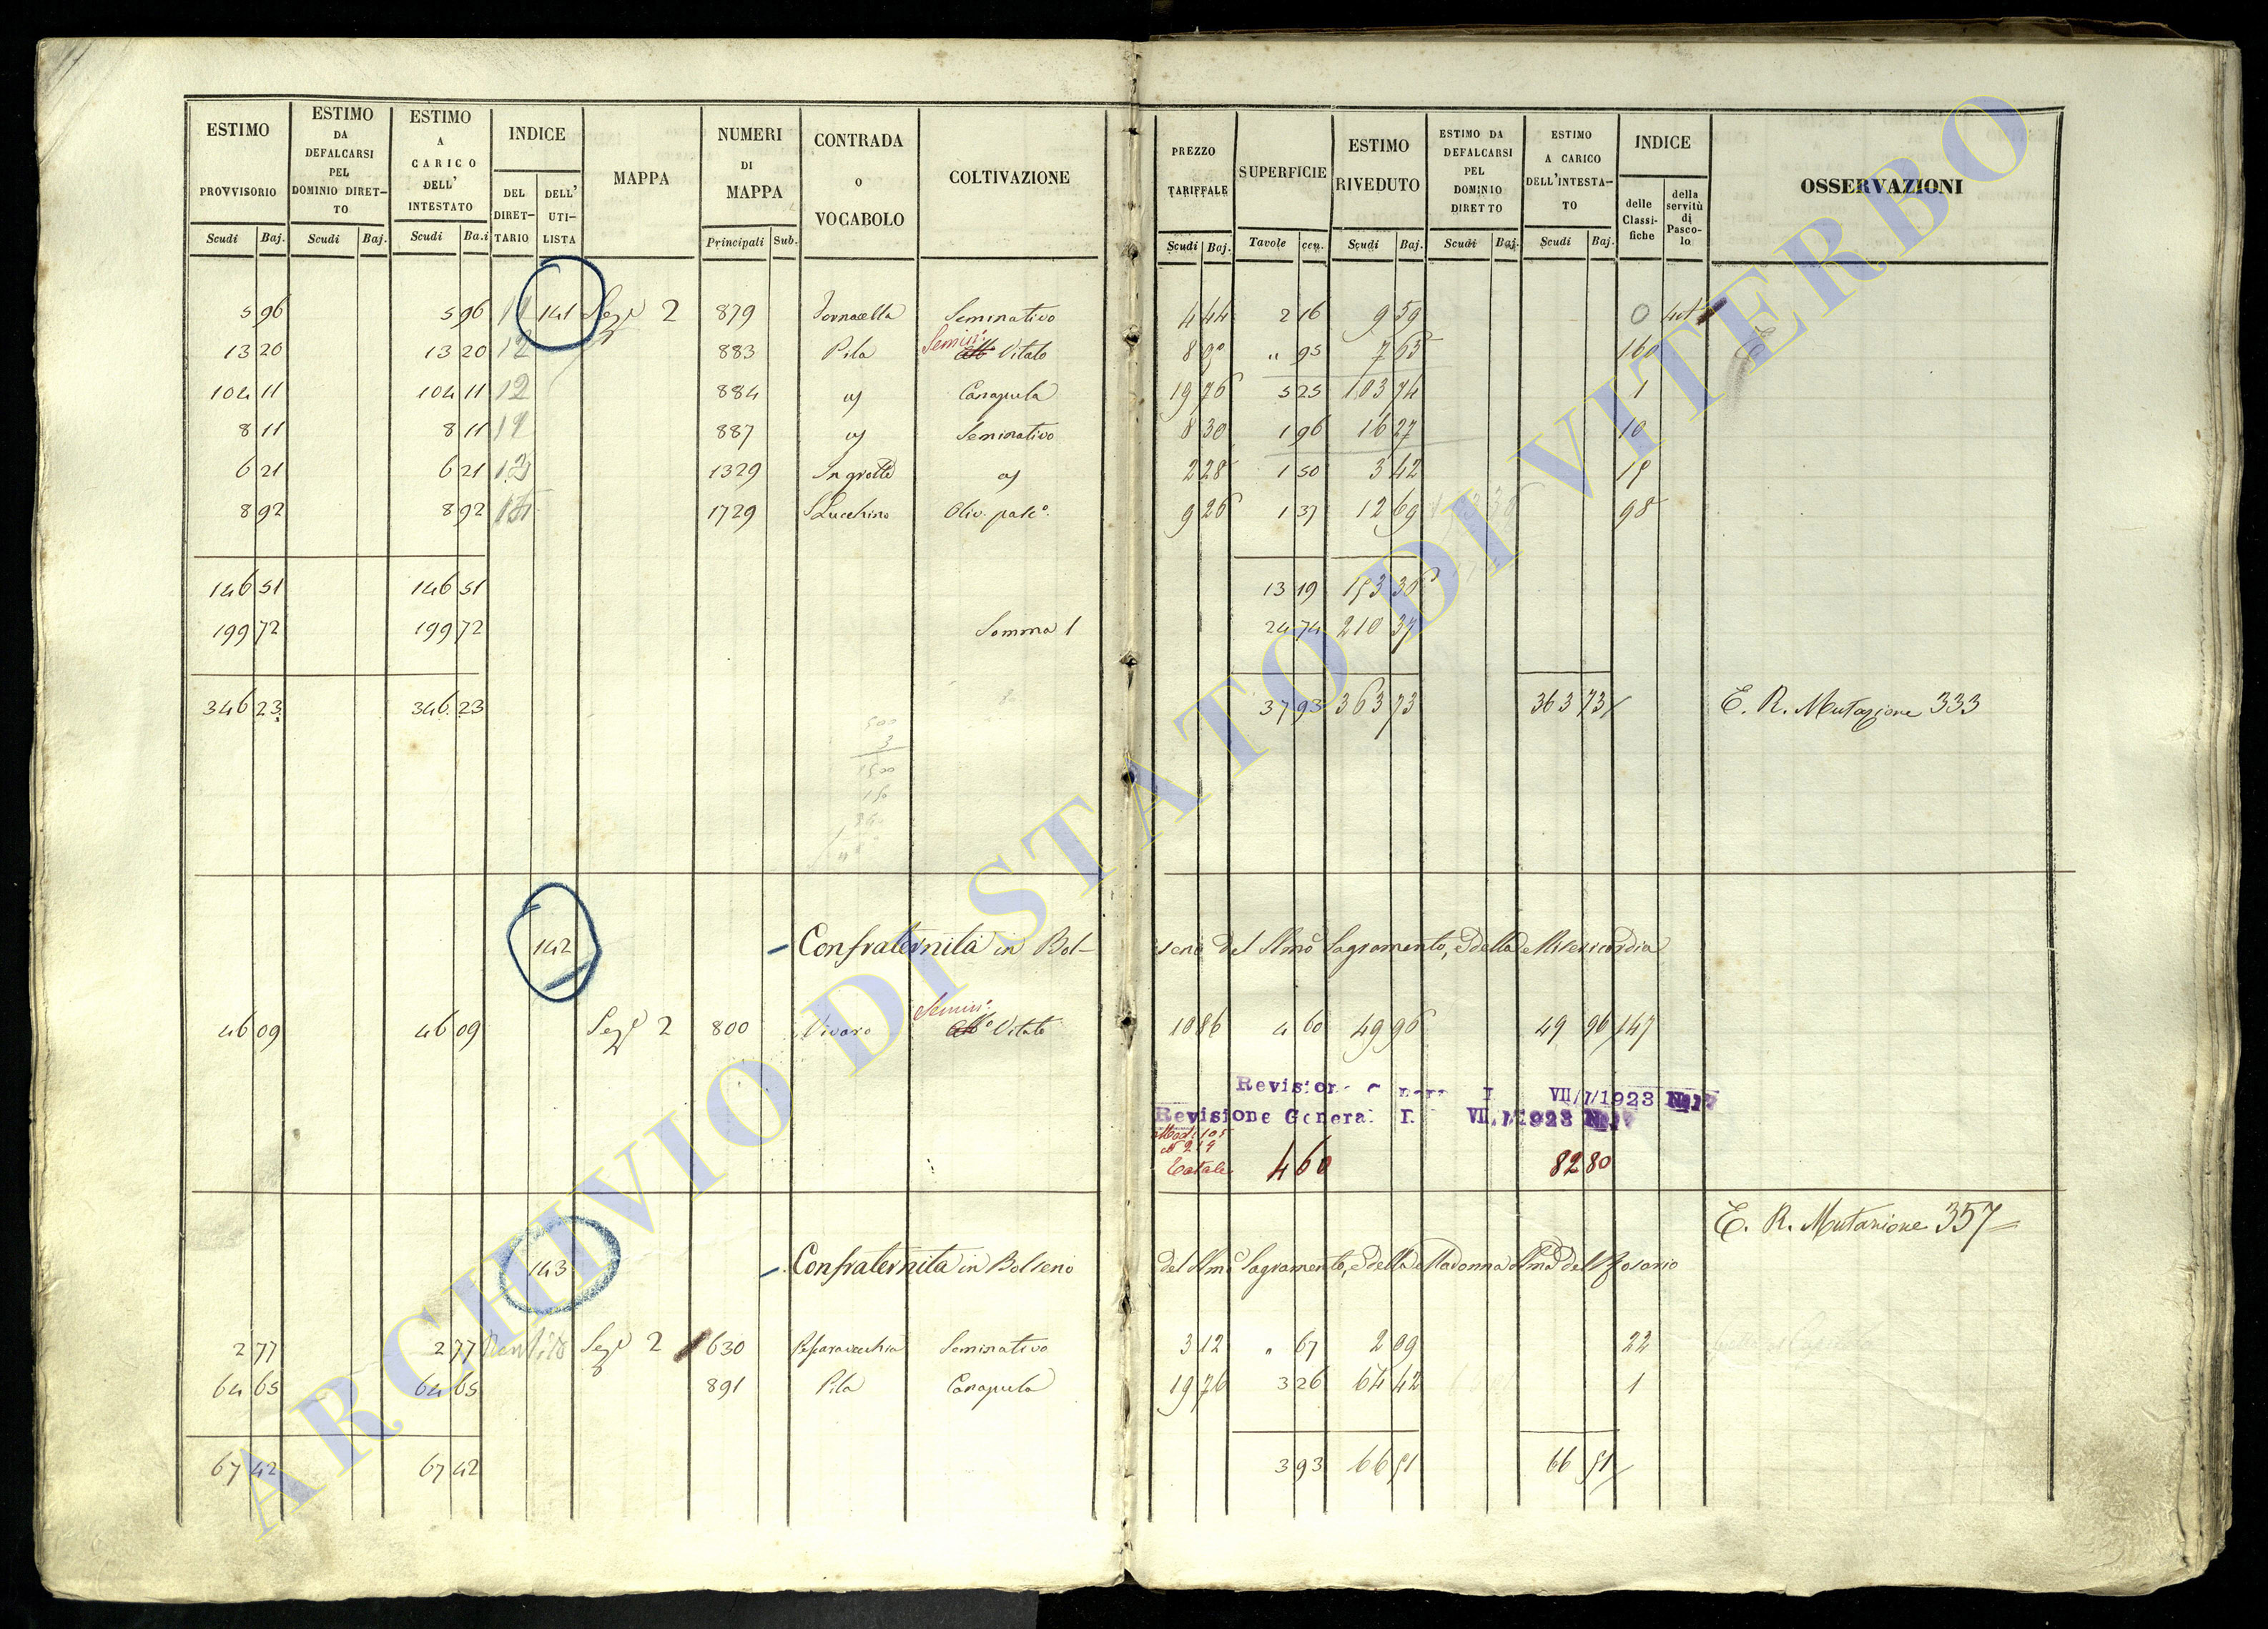 ESTIMO PROVVISORIO Scudi Baj.
ESTIMO DA DEFALCARSI PEL DOMINIO DIRET-TO Scudi Baj.
ESTIMO A CARICO DELL' INTESTATO Scudi Ba.i
INDICE DEL DIRET-TARIO DELL' UTI-LISTA
MAPPA
NUMERI DI MAPPA Principali Sub.
CONTRADA o VOCABOLO
COLTIVAZIONE
PREZZO TARIFFALE Scudi Baj.
SUPERFICIE Tavole cen.
ESTIMO RIVEDUTO Scudi Baj.
ESTIMO DA DEFALCARSI PEL DOMINIO DIRETTO Scudi Baj.
ESTIMO A CARICO DELL'INTESTA-TO Scudi Baj.
INDICE delle Classi-fiche della servitù di Pasco-lo
OSSERVAZIONI
5 96 5 96 141 Sez.e 2 879 Fornacella Seminativo 4 44 2 16 9 59 0
13 20 13 20 12 883 Pila Semin.o Vitato 8 " 95 7 65 160
104 11 104 11 12 884 Canapula 19 76 5 25 103 74 1
8 11 8 11 887 Seminativo 8 30 1 96 16 27 10
6 21 6 21 1329 2 28 1 50 3 42 15
8 92 8 92 1729 9 26 1 37 12 69 98
146 51 146 51 13 19 153 36
199 72 199 72 Somma 1 24 74 210 37
346 23 346 23 37 93 363 73 363 73 E. R. Mutazione 333
500
3
1500
142 Confraternita in Bol-seno del SSmo Sagramento, e della Misericordia
46 09 46 09 Sez.e 2 800 Vivaro Semin.o Vitato 10 86 4 60 49 96 49 96 147
VII/1/1923
Revisione General VII/1/1923
Totale 4 60 82 80
E. R. Mutazione 357
143 Confraternita in Bolseno del SSmo Sagramento, e della Madonna SSma del Rosario
2 77 2 77 Sez.e 2 630 Pescaravecchia Seminativo 3 12 " 67 2 09 22
64 65 64 65 891 Pila Canapula 19 76 3 26 64 42 1
67 42 67 42 3 93 66 51 66 51
ARCHIVIO DI STATO DI VITERBO